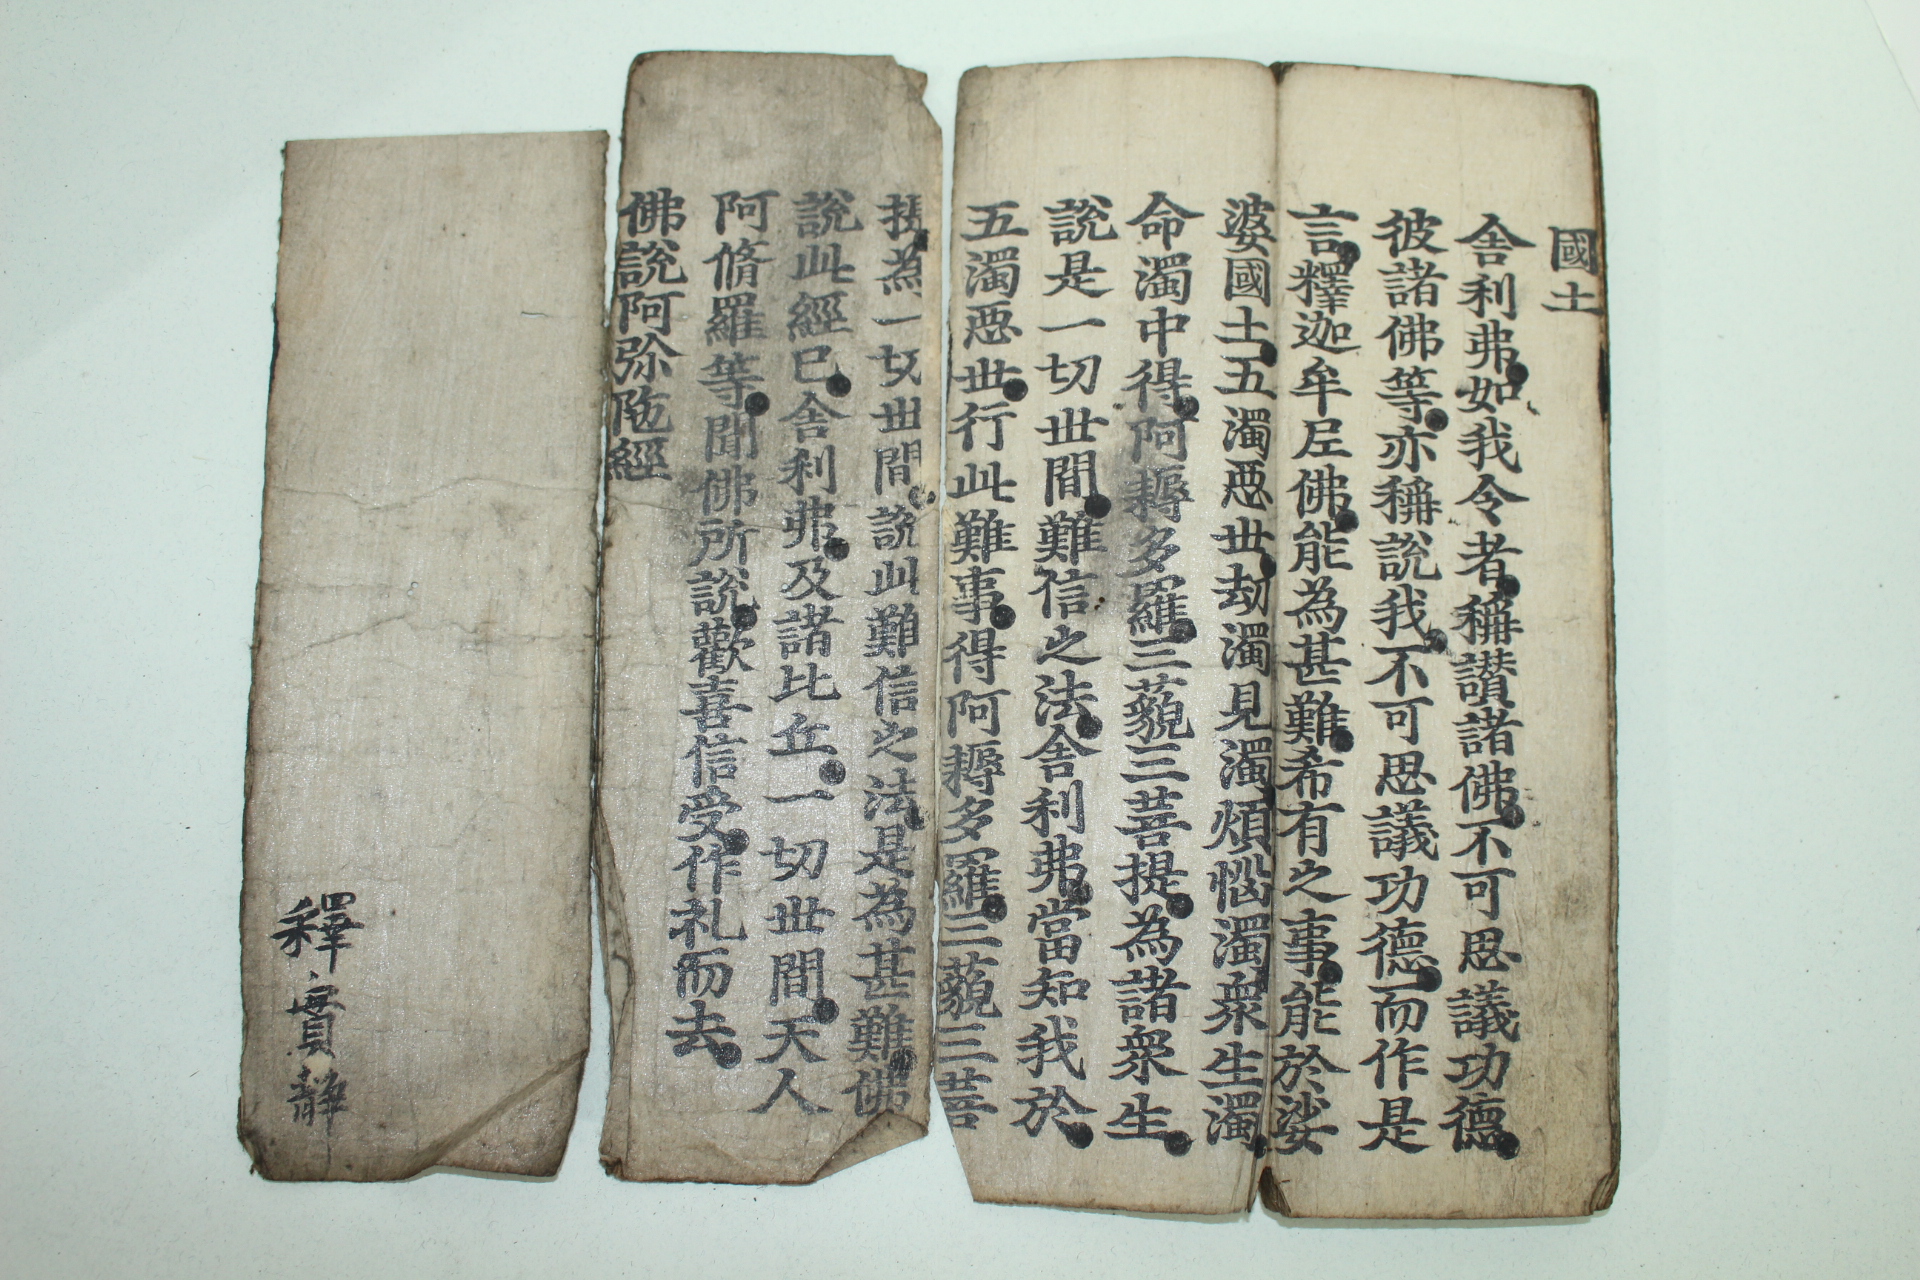 國土
舍利弗如我今者稱讃諸佛不可思議功德
彼諸佛等亦稱說我不可思議功德而作是
言釋迦牟尼佛能為甚難希有之事能於娑
婆國土五濁惡世劫濁見濁煩惱濁衆生濁
命濁中得阿耨多羅三藐三菩提為諸衆生
說是一切世間難信之法舍利弗當知我於
五濁惡世行此難事得阿耨多羅三藐三菩
提為一切世間說此難信之法是為甚難佛
說此經已舍利弗及諸比丘一切世間天人
阿脩羅等聞佛所說歡喜信受作礼而去
佛說阿弥陁經
釋實靜